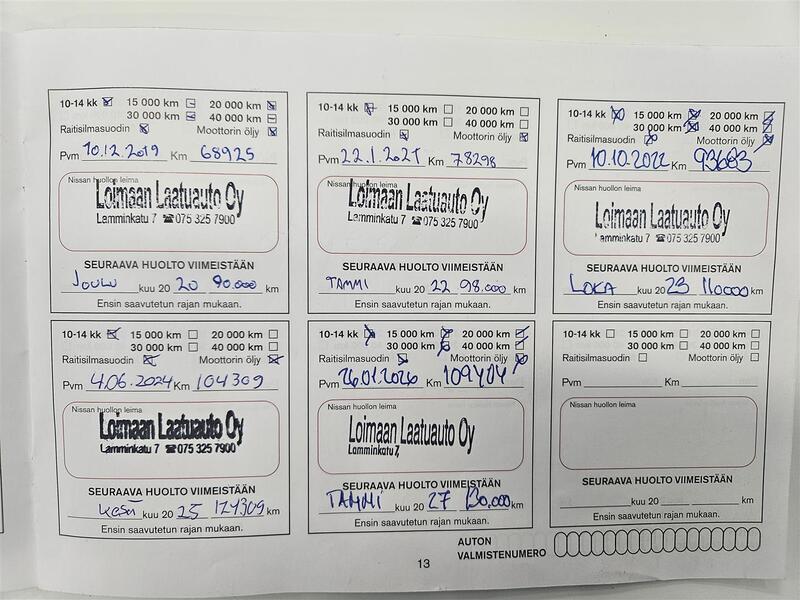 10-14 kk 15 000 km 20 000 km
30 000 km 40 000 km
Raitisilmasuodin Moottorin öljy
Pvm 10.12.2019 Km 68925
Nissan huollon leima
Loimaan Laatuauto Oy
Lamminkatu 7 ☎075 325 7900
SEURAAVA HUOLTO VIIMEISTÄÄN
JOULU kuu 20 20 90.000 km
Ensin saavutetun rajan mukaan.
10-14 kk 15 000 km 20 000 km
30 000 km 40 000 km
Raitisilmasuodin Moottorin öljy
Pvm 22.1.2021 Km 78298
Nissan huollon leima
Loimaan Laatuauto Oy
Lamminkatu 7 ☎075 325 7900
SEURAAVA HUOLTO VIIMEISTÄÄN
TAMMI kuu 20 22 98.000 km
Ensin saavutetun rajan mukaan.
10-14 kk 15 000 km 20 000 km
30 000 km 40 000 km
Raitisilmasuodin Moottorin öljy
Pvm 10.10.2022 Km 93683
Nissan huollon leima
Loimaan Laatuauto Oy
Lamminkatu 7 ☎075 325 7900
SEURAAVA HUOLTO VIIMEISTÄÄN
LOKA kuu 20 23 110000 km
Ensin saavutetun rajan mukaan.
10-14 kk 15 000 km 20 000 km
30 000 km 40 000 km
Raitisilmasuodin Moottorin öljy
Pvm 4.06.2024 Km 104309
Nissan huollon leima
Loimaan Laatuauto Oy
Lamminkatu 7 ☎075 325 7900
SEURAAVA HUOLTO VIIMEISTÄÄN
Kesä kuu 20 25 124309 km
Ensin saavutetun rajan mukaan.
10-14 kk 15 000 km 20 000 km
30 000 km 40 000 km
Raitisilmasuodin Moottorin öljy
Pvm 26.01.2026 Km 109404
Nissan huollon leima
Loimaan Laatuauto Oy
Lamminkatu 7
SEURAAVA HUOLTO VIIMEISTÄÄN
TAMMI kuu 20 27 130.000 km
Ensin saavutetun rajan mukaan.
10-14 kk 15 000 km 20 000 km
30 000 km 40 000 km
Raitisilmasuodin Moottorin öljy
Pvm Km
Nissan huollon leima
SEURAAVA HUOLTO VIIMEISTÄÄN
kuu 20 km
Ensin saavutetun rajan mukaan.
AUTON
VALMISTENUMERO
13